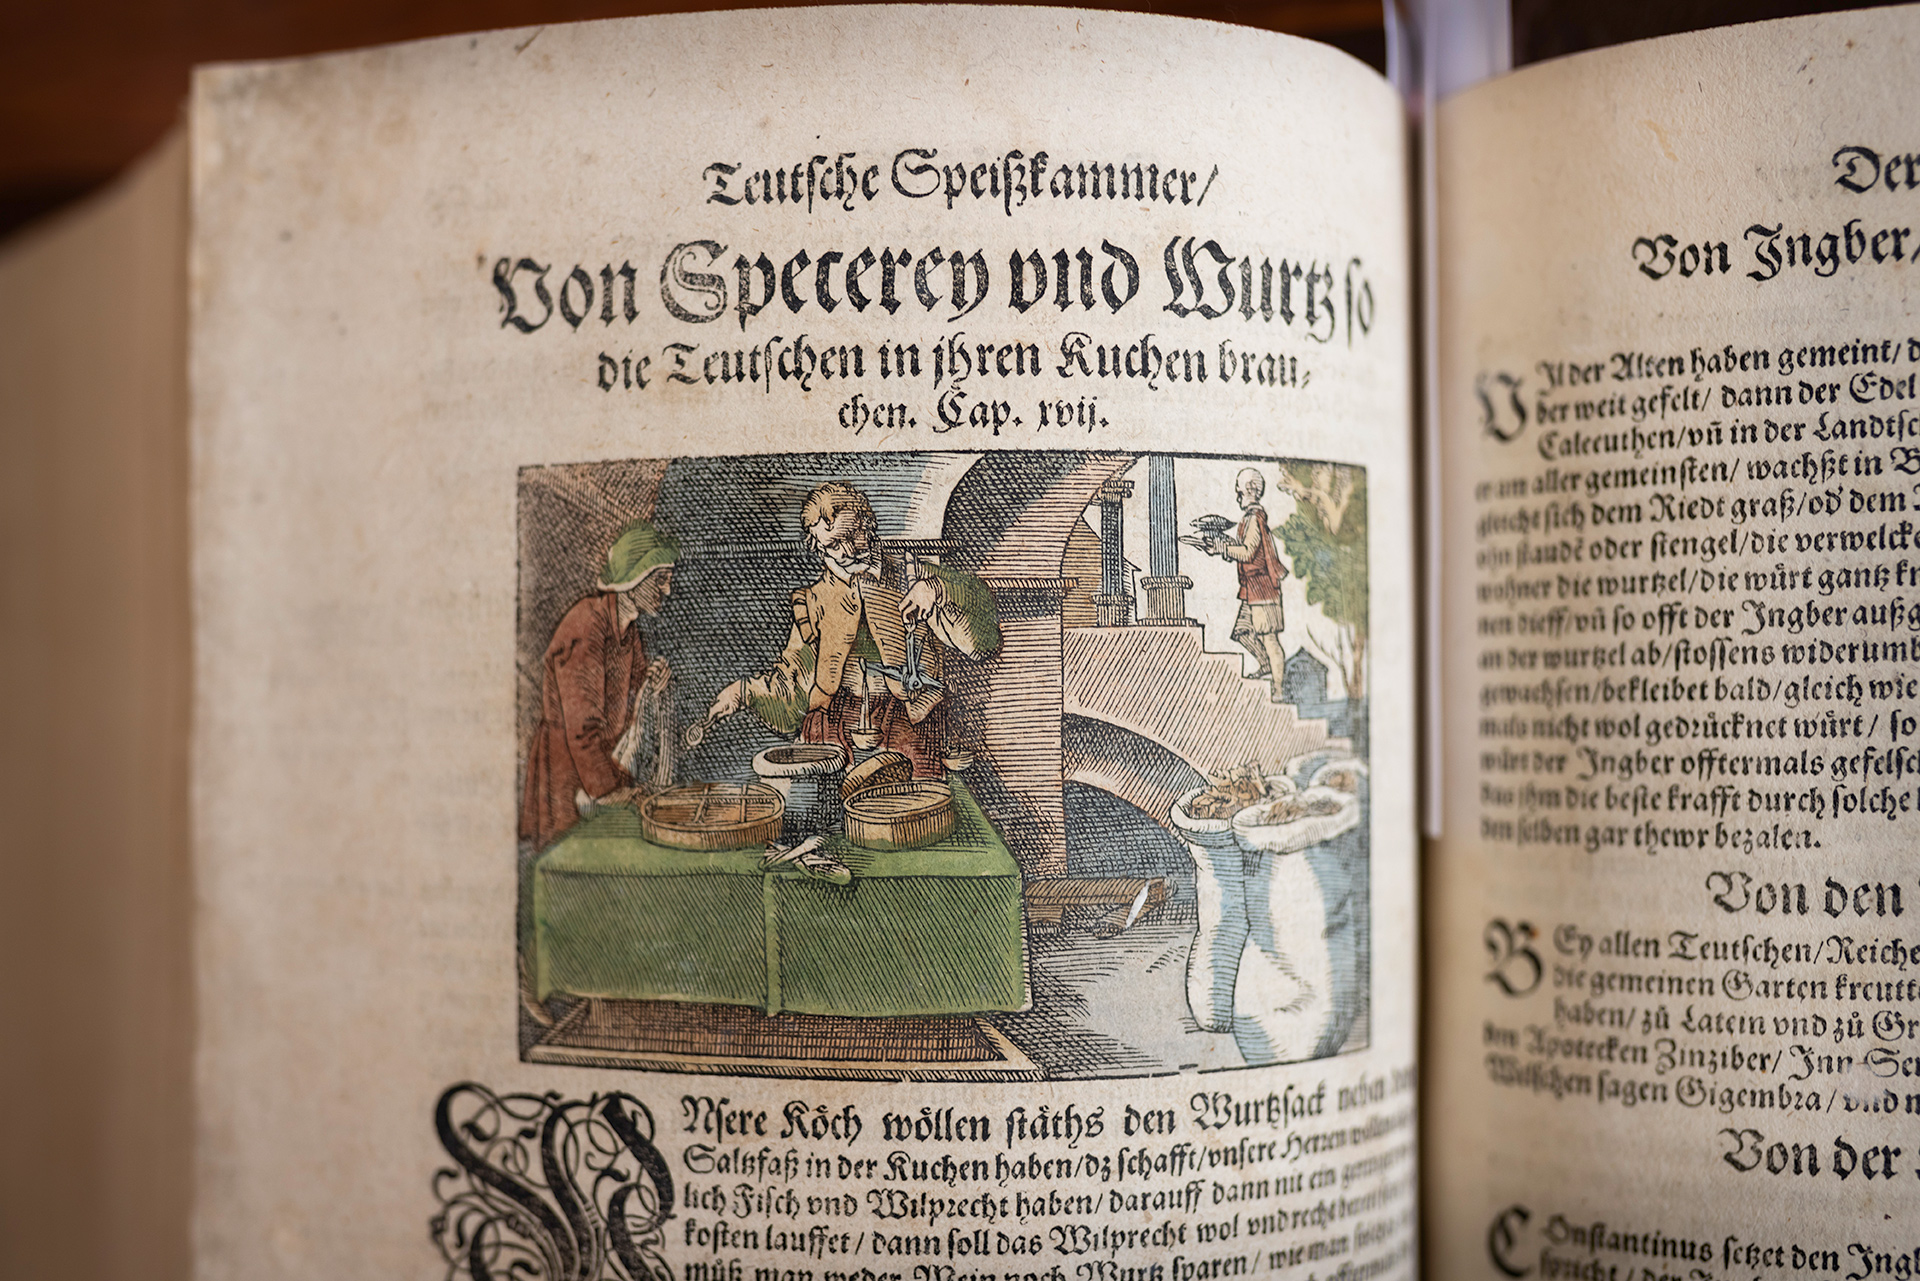 Teutſche Speiſzkammer/
Von Specerey vnd Wurtz ſo
die Teutſchen in jhren Kuchen brau⸗
chen. Cap. xvij.
VNſere Köch wöllen ſtäths den Wurtzſack neben
Saltzfaß in der Kuchen haben/dz ſchafft/vnſere Herren wöllen
lich Fiſch vnd Wilprecht haben/ darauff dann mit ein
koſten lauffet/ dann ſoll das Wilprecht wol vnd recht
müß man weder Wein noch Wurtz ſparen/ wie man
Der
Von Ingber/
VIl der Alten haben gemeint/
ber weit gefelt/ dann der Edel
Calecuthen/vñ in der Landtſc
er am aller gemeinſten/ wachßt in
gleicht ſich dem Riedt graß/od dem
ſtaudẽ oder ſtengel/die verwelck
wohner die wurtzel/die würt gantz
nen dieff/vñ ſo offt der Ingber außg
an der wurtzel ab/ſtoſſens widerumb
gewachſen/bekleibet bald/gleich wie
mals nicht wol gedrücknet würt/ ſo
würt der Ingber offtermals gefelſch
das jhm die beſte krafft durch ſolche
den ſelben gar thewr bezalen.
Von den
BEy allen Teutſchen/Reiche
die gemeinen Garten kreutt
haben/ zů Latein vnd zů Gr
den Apotecken Zinziber/ Inn
Welſchen ſagen Gigembra/ vnd
Von der
COnſtantinus ſetzet den Ing
ſpricht/ der